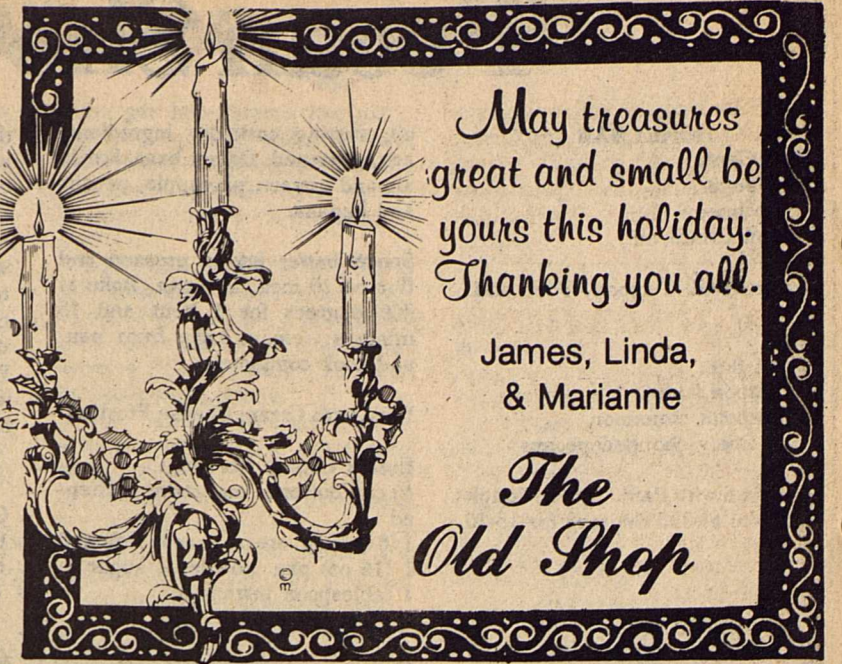 May treasures
great and small be
yours this holiday.
Thanking you all.
James, Linda,
& Marianne
The
Old Shop